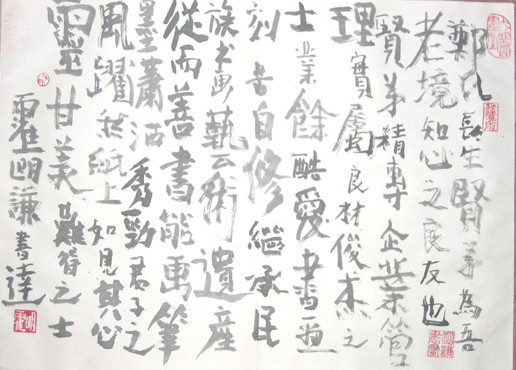 鄭氏長生賢弟為吾
老境知心之良友也
賢弟精專企業管
理實屬良材俊杰之
士業餘酷愛書画
刻苦自修繼承民
族藝術遺産
從而善書能畫筆
墨蕭洒秀勁君子之
風躍然紙上如見其心
靈甘美難之士
霍明謙書達